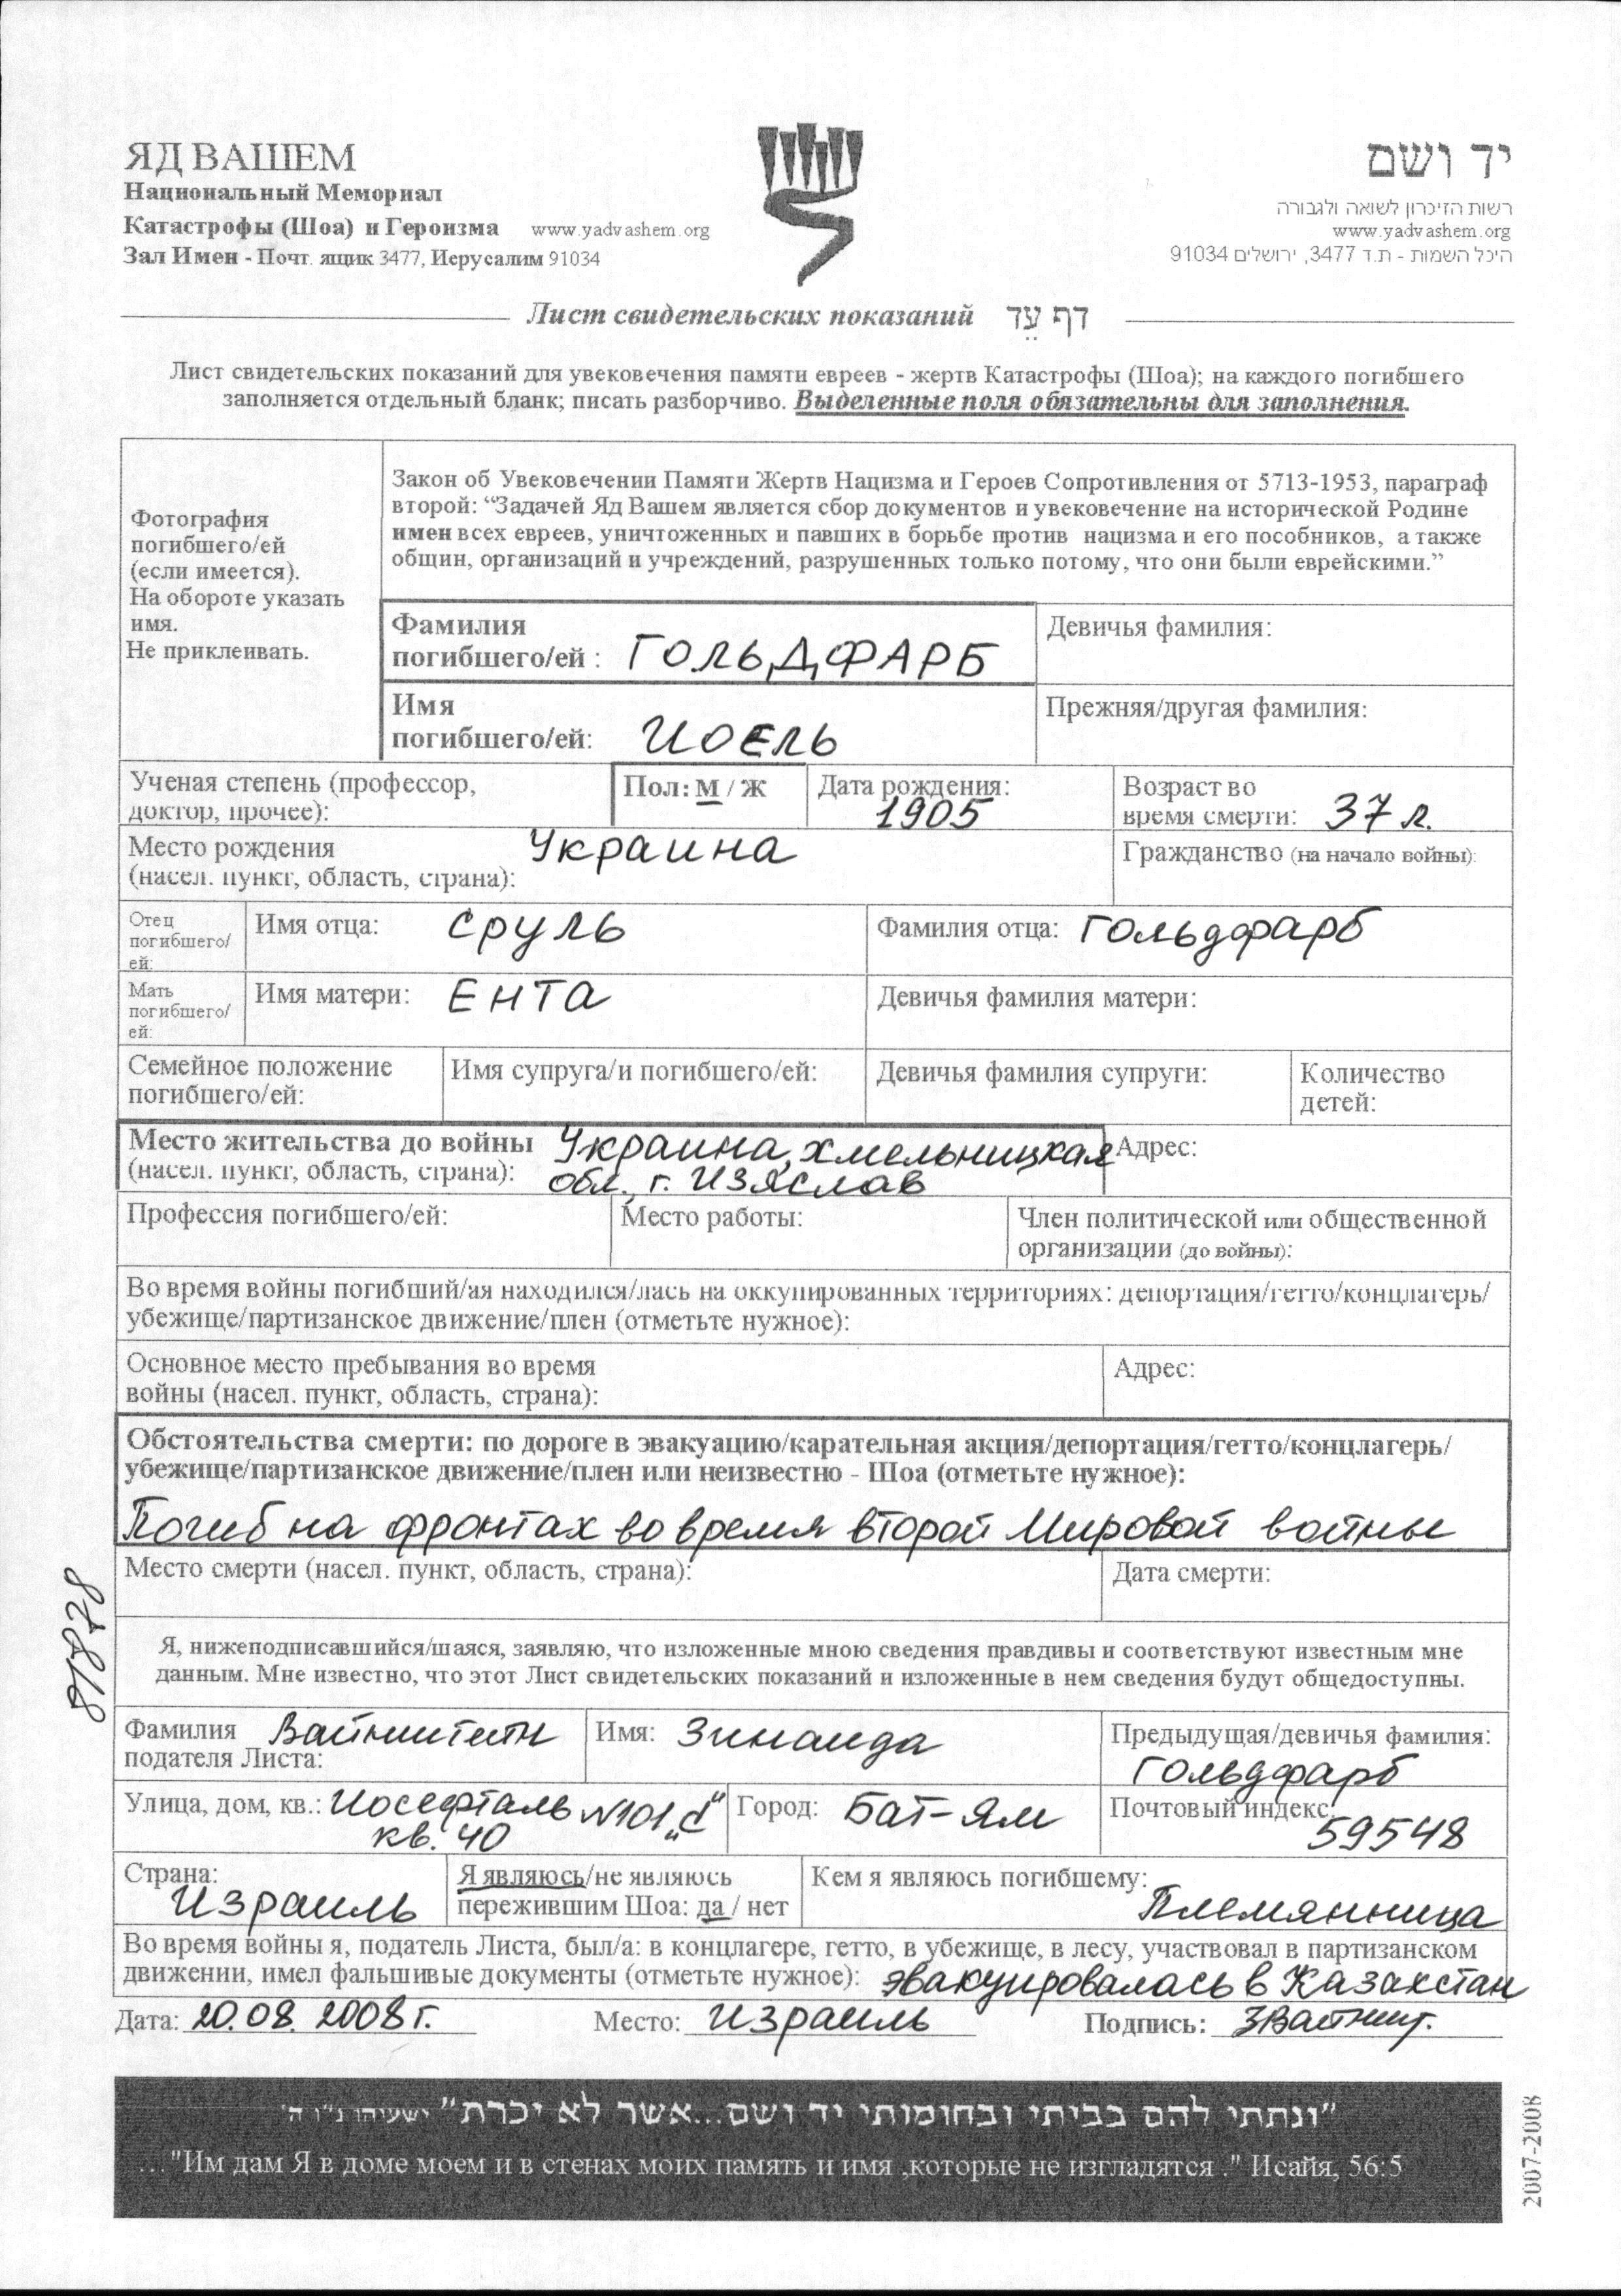 ЯД ВАШЕМ
Национальный Мемориал
Катастрофы (Шоа) и Героизма www.yadvashem.org
Зал Имен - Почт. ящик 3477, Иерусалим 91034
יד ושם
רשות הזיכרון לשואה ולגבורה
www.yadvashem.org
היכל השמות - ת.ד 3477, ירושלים 91034
Лист свидетельских показаний דף עֵד
Лист свидетельских показаний для увековечения памяти евреев - жертв Катастрофы (Шоа); на каждого погибшего
заполняется отдельный бланк; писать разборчиво. Выделенные поля обязательны для заполнения.
Фотография
погибшего/ей
(если имеется).
На обороте указать
имя.
Не приклеивать.
Закон об Увековечении Памяти Жертв Нацизма и Героев Сопротивления от 5713-1953, параграф
второй: “Задачей Яд Вашем является сбор документов и увековечение на исторической Родине
имен всех евреев, уничтоженных и павших в борьбе против нацизма и его пособников, а также
общин, организаций и учреждений, разрушенных только потому, что они были еврейскими.”
Фамилия
погибшего/ей : ГОЛЬДФАРБ
Девичья фамилия:
Имя
погибшего/ей: ИОЕЛЬ
Прежняя/другая фамилия:
Ученая степень (профессор,
доктор, прочее):
Пол: М / Ж
Дата рождения:
1905
Возраст во
время смерти: 37 л.
Место рождения Украина
(насел. пункт, область, страна):
Гражданство (на начало войны):
Отец
погибшего/
ей:
Имя отца: Сруль
Фамилия отца: Гольдфарб
Мать
погибшего/
ей:
Имя матери: ЕНТА
Девичья фамилия матери:
Семейное положение
погибшего/ей:
Имя супруга/и погибшего/ей:
Девичья фамилия супруги:
Количество
детей:
Место жительства до войны Украина, хмельницкая
(насел. пункт, область, страна): обл., г. Изяслав
Адрес:
Профессия погибшего/ей:
Место работы:
Член политической или общественной
организации (до войны):
Во время войны погибший/ая находился/лась на оккупированных территориях: депортация/гетто/концлагерь/
убежище/партизанское движение/плен (отметьте нужное):
Основное место пребывания во время
войны (насел. пункт, область, страна):
Адрес:
Обстоятельства смерти: по дороге в эвакуацию/карательная акция/депортация/гетто/концлагерь/
убежище/партизанское движение/плен или неизвестно - Шоа (отметьте нужное):
Погиб на фронтах во время второй Мировой войны
Место смерти (насел. пункт, область, страна):
Дата смерти:
81878
Я, нижеподписавшийся/шаяся, заявляю, что изложенные мною сведения правдивы и соответствуют известным мне
данным. Мне известно, что этот Лист свидетельских показаний и изложенные в нем сведения будут общедоступны.
Фамилия Вайнштейн
подателя Листа:
Имя: Зинаида
Предыдущая/девичья фамилия:
Гольдфарб
Улица, дом, кв.: Иосефталь №101 „С“
кв. 40
Город: Бат-Ям
Почтовый индекс:
59548
Страна:
Израиль
Я являюсь/не являюсь
пережившим Шоа: да / нет
Кем я являюсь погибшему:
Племянница
Во время войны я, податель Листа, был/а: в концлагере, гетто, в убежище, в лесу, участвовал в партизанском
движении, имел фальшивые документы (отметьте нужное): эвакуировалась в Казахстан
Дата: 20.08.2008 г. Место: Израиль Подпись: ЗВайнш.
"ונתתי להם בביתי ובחומותי יד ושם...אשר לא יכרת" ישעיהו נ"ו ה'
..."Им дам Я в доме моем и в стенах моих память и имя ,которые не изгладятся ." Исайя, 56:5
2007-2008